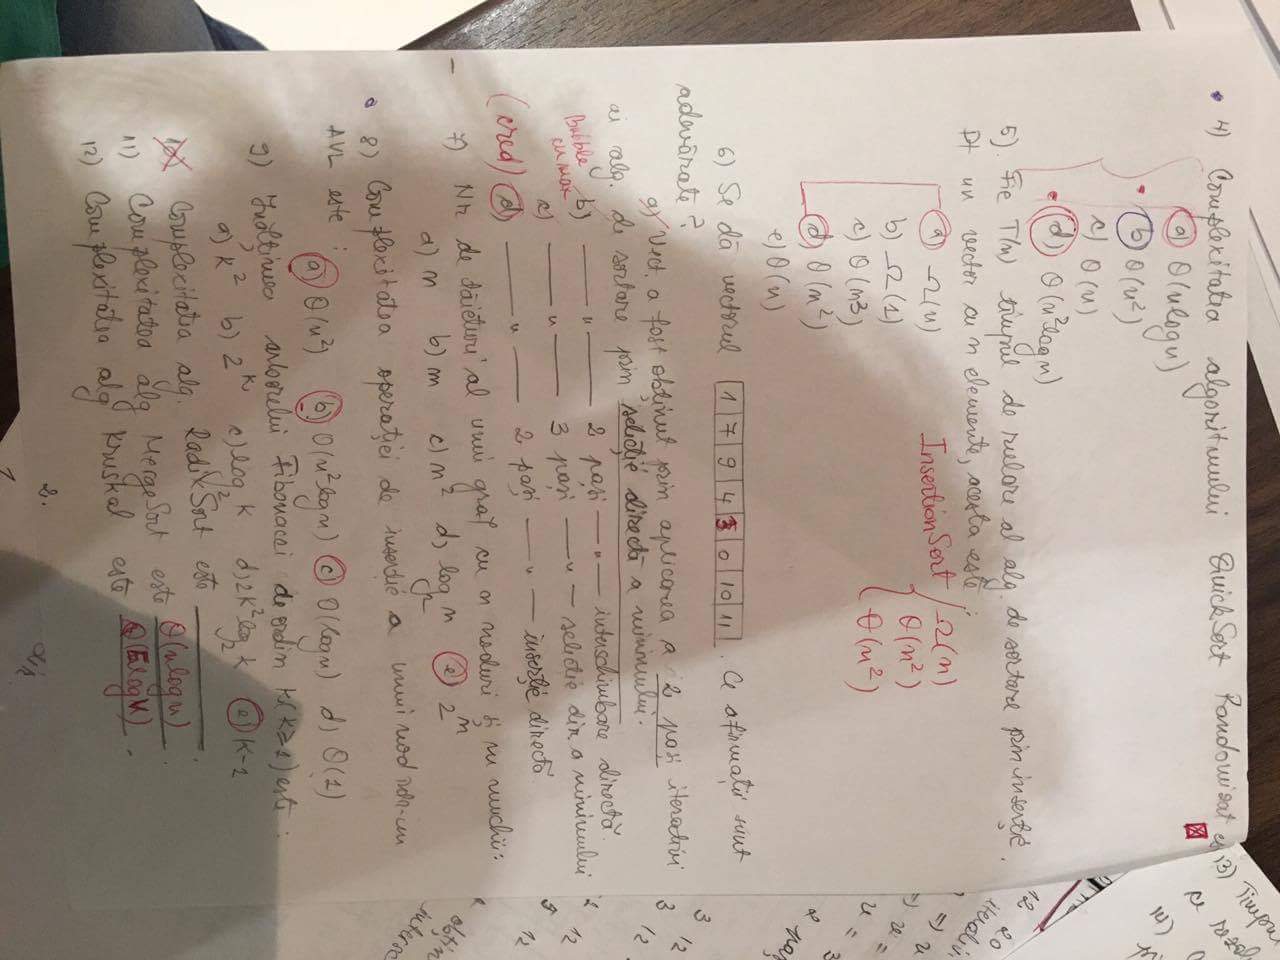 4) Complexitatea algoritmului QuickSort Randomizat e
a) Θ(nlogn)
b) Θ(n²)
c) Θ(n)
d) Θ(n²logn)
5). Fie T(n) timpul de rulare al alg. de sortare prin inserție.
Pt un vector cu n elemente, acesta este :
a) Ω(n)
b) Ω(1)
c) Θ(n3)
d) Θ(n²)
e) Θ(n)
InsertionSort
Ω(n)
Θ(n²)
Θ(n²)
6) Se dă vectorul 1 7 9 4 3 0 10 11 . Ce afirmații sunt
adevărate?
a) Vect. a fost obținut prin aplicarea a 2 pași iterativi
ai alg. de sortare prin selecție directă a minimului.
Bubble cu max
b) —— " —— 2 pași — " — interschimbare directă.
c) —— " —— 3 pași — " — selecție dir. a minimului
(cred) d) —— " —— 2 pași — " — inserție directă
7) Nr de tăieturi al unui graf cu n noduri și m muchii:
a) n b) m c) n² d) log₂n e) 2ᵐ
8) Complexitatea operației de inserție a unui nod într-un
AVL este :
a) Θ(n²) b) O(n²logn) c) O(logn) d) O(1)
9) Înălțimea arborelui Fibonacci de ordin k(k≥1) este :
a) k² b) 2ᵏ c) log₂k d) 2k²log₂k e) k-2
10) Complexitatea alg. RadixSort este ____.
11) Complexitatea alg MergeSort este Θ(nlogn).
12) Complexitatea alg Kruskal este O(ElogV).
2.
1
13) Timpul
ce rezol
14)
12 20
iterativ
2 pași
3 12
3 12
12
5 12
obțin
intersc